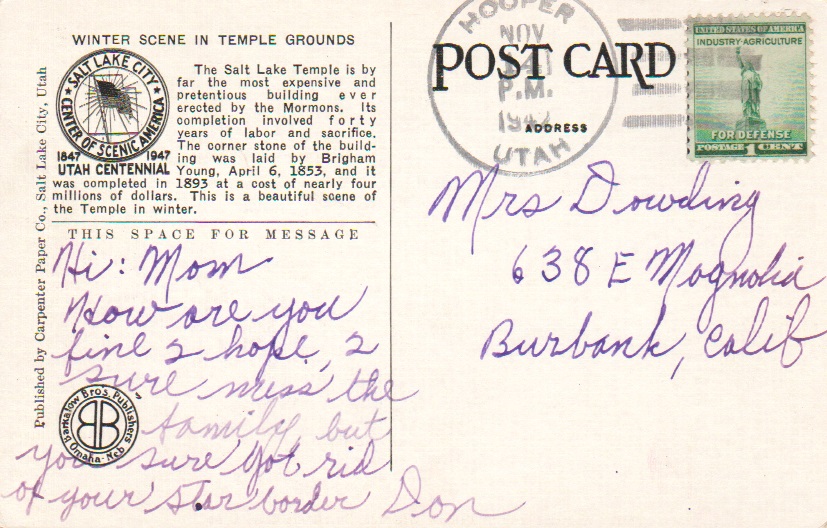 WINTER SCENE IN TEMPLE GROUNDS
SALT LAKE CITY
CENTER OF SCENIC AMERICA
1847 1947
UTAH CENTENNIAL
The Salt Lake Temple is by
far the most expensive and
pretentious building ever
erected by the Mormons. Its
completion involved forty
years of labor and sacrifice.
The corner stone of the build-
ing was laid by Brigham
Young, April 6, 1853, and it
was completed in 1893 at a cost of nearly four
millions of dollars. This is a beautiful scene of
the Temple in winter.
THIS SPACE FOR MESSAGE
Hi: Mom
How are you
fine I hope, I
sure miss the
family, but
you sure got rid
of your star border Don
Published by Carpenter Paper Co., Salt Lake City, Utah
Barkalow Bro's. Publishers
Omaha-Neb
BB
POST CARD
ADDRESS
HOOPER
NOV
P.M.
UTAH
UNITED STATES OF AMERICA
INDUSTRY-AGRICULTURE
FOR DEFENSE
POSTAGE 1 CENT
Mrs Dowding
638 E Magnolia
Burbank, Calif